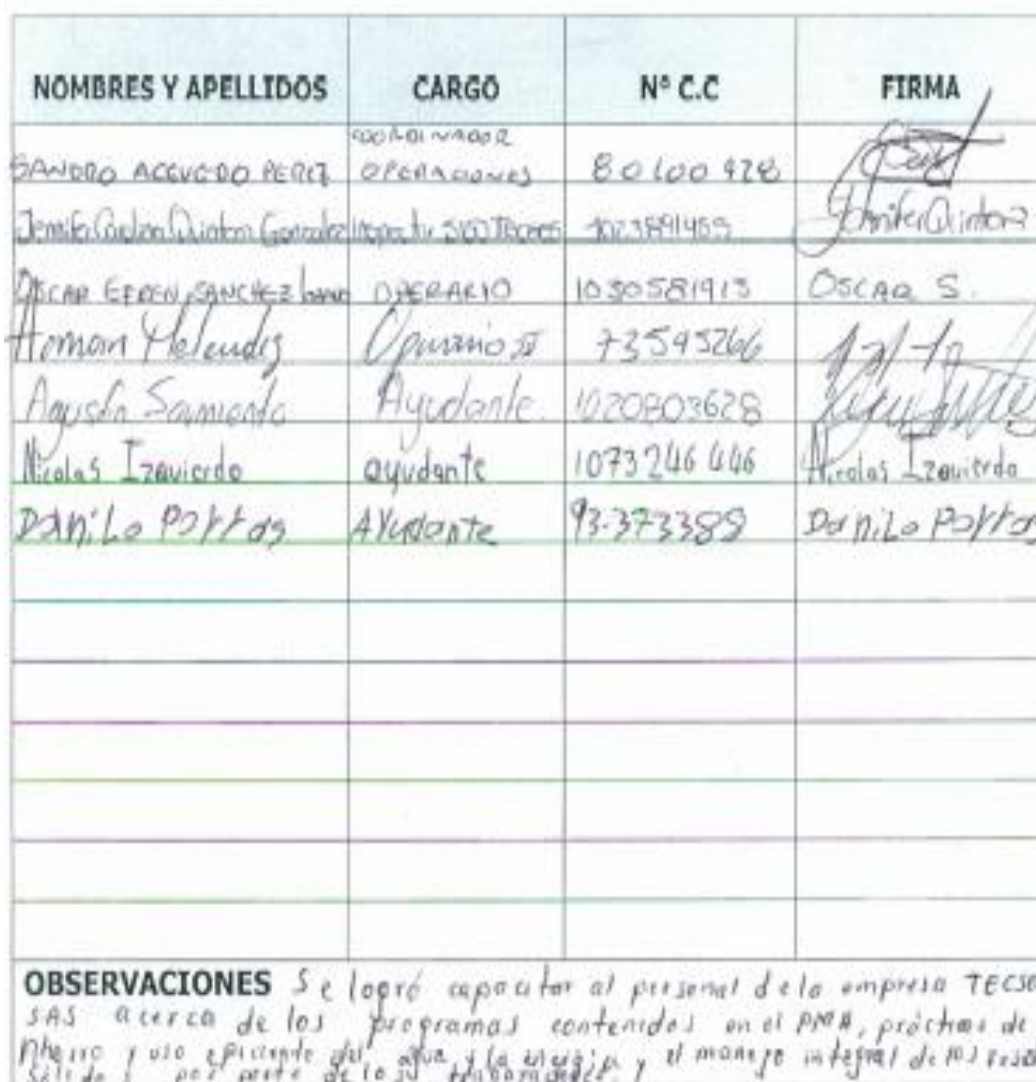 NOMBRES Y APELLIDOS CARGO Nº C.C FIRMA
COORDINADOR
SANDRO ACEVEDO PEREZ OPERACIONES 80100928
Jennifer Carolina Quintero Gonzalez Inspector 1023891455 Jennifer Quintero
OSCAR EFREN SANCHEZ OPERARIO 1030581913 OSCAR S.
Meléndez Operario II 73595266
Agustín Sarmiento Ayudante. 1020803628
Nicolas Izquierdo ayudante 1073246446 Nicolas Izquierdo
DaniLo Porras AYudante 93.373389 DaniLo Porras
OBSERVACIONES Se logró capacitar al personal de la empresa
SAS acerca de los programas contenidos en el PMA, prácticas de
Ahorro y uso eficiente del agua y la energía y el manejo integral de los
por parte de los trabajadores.